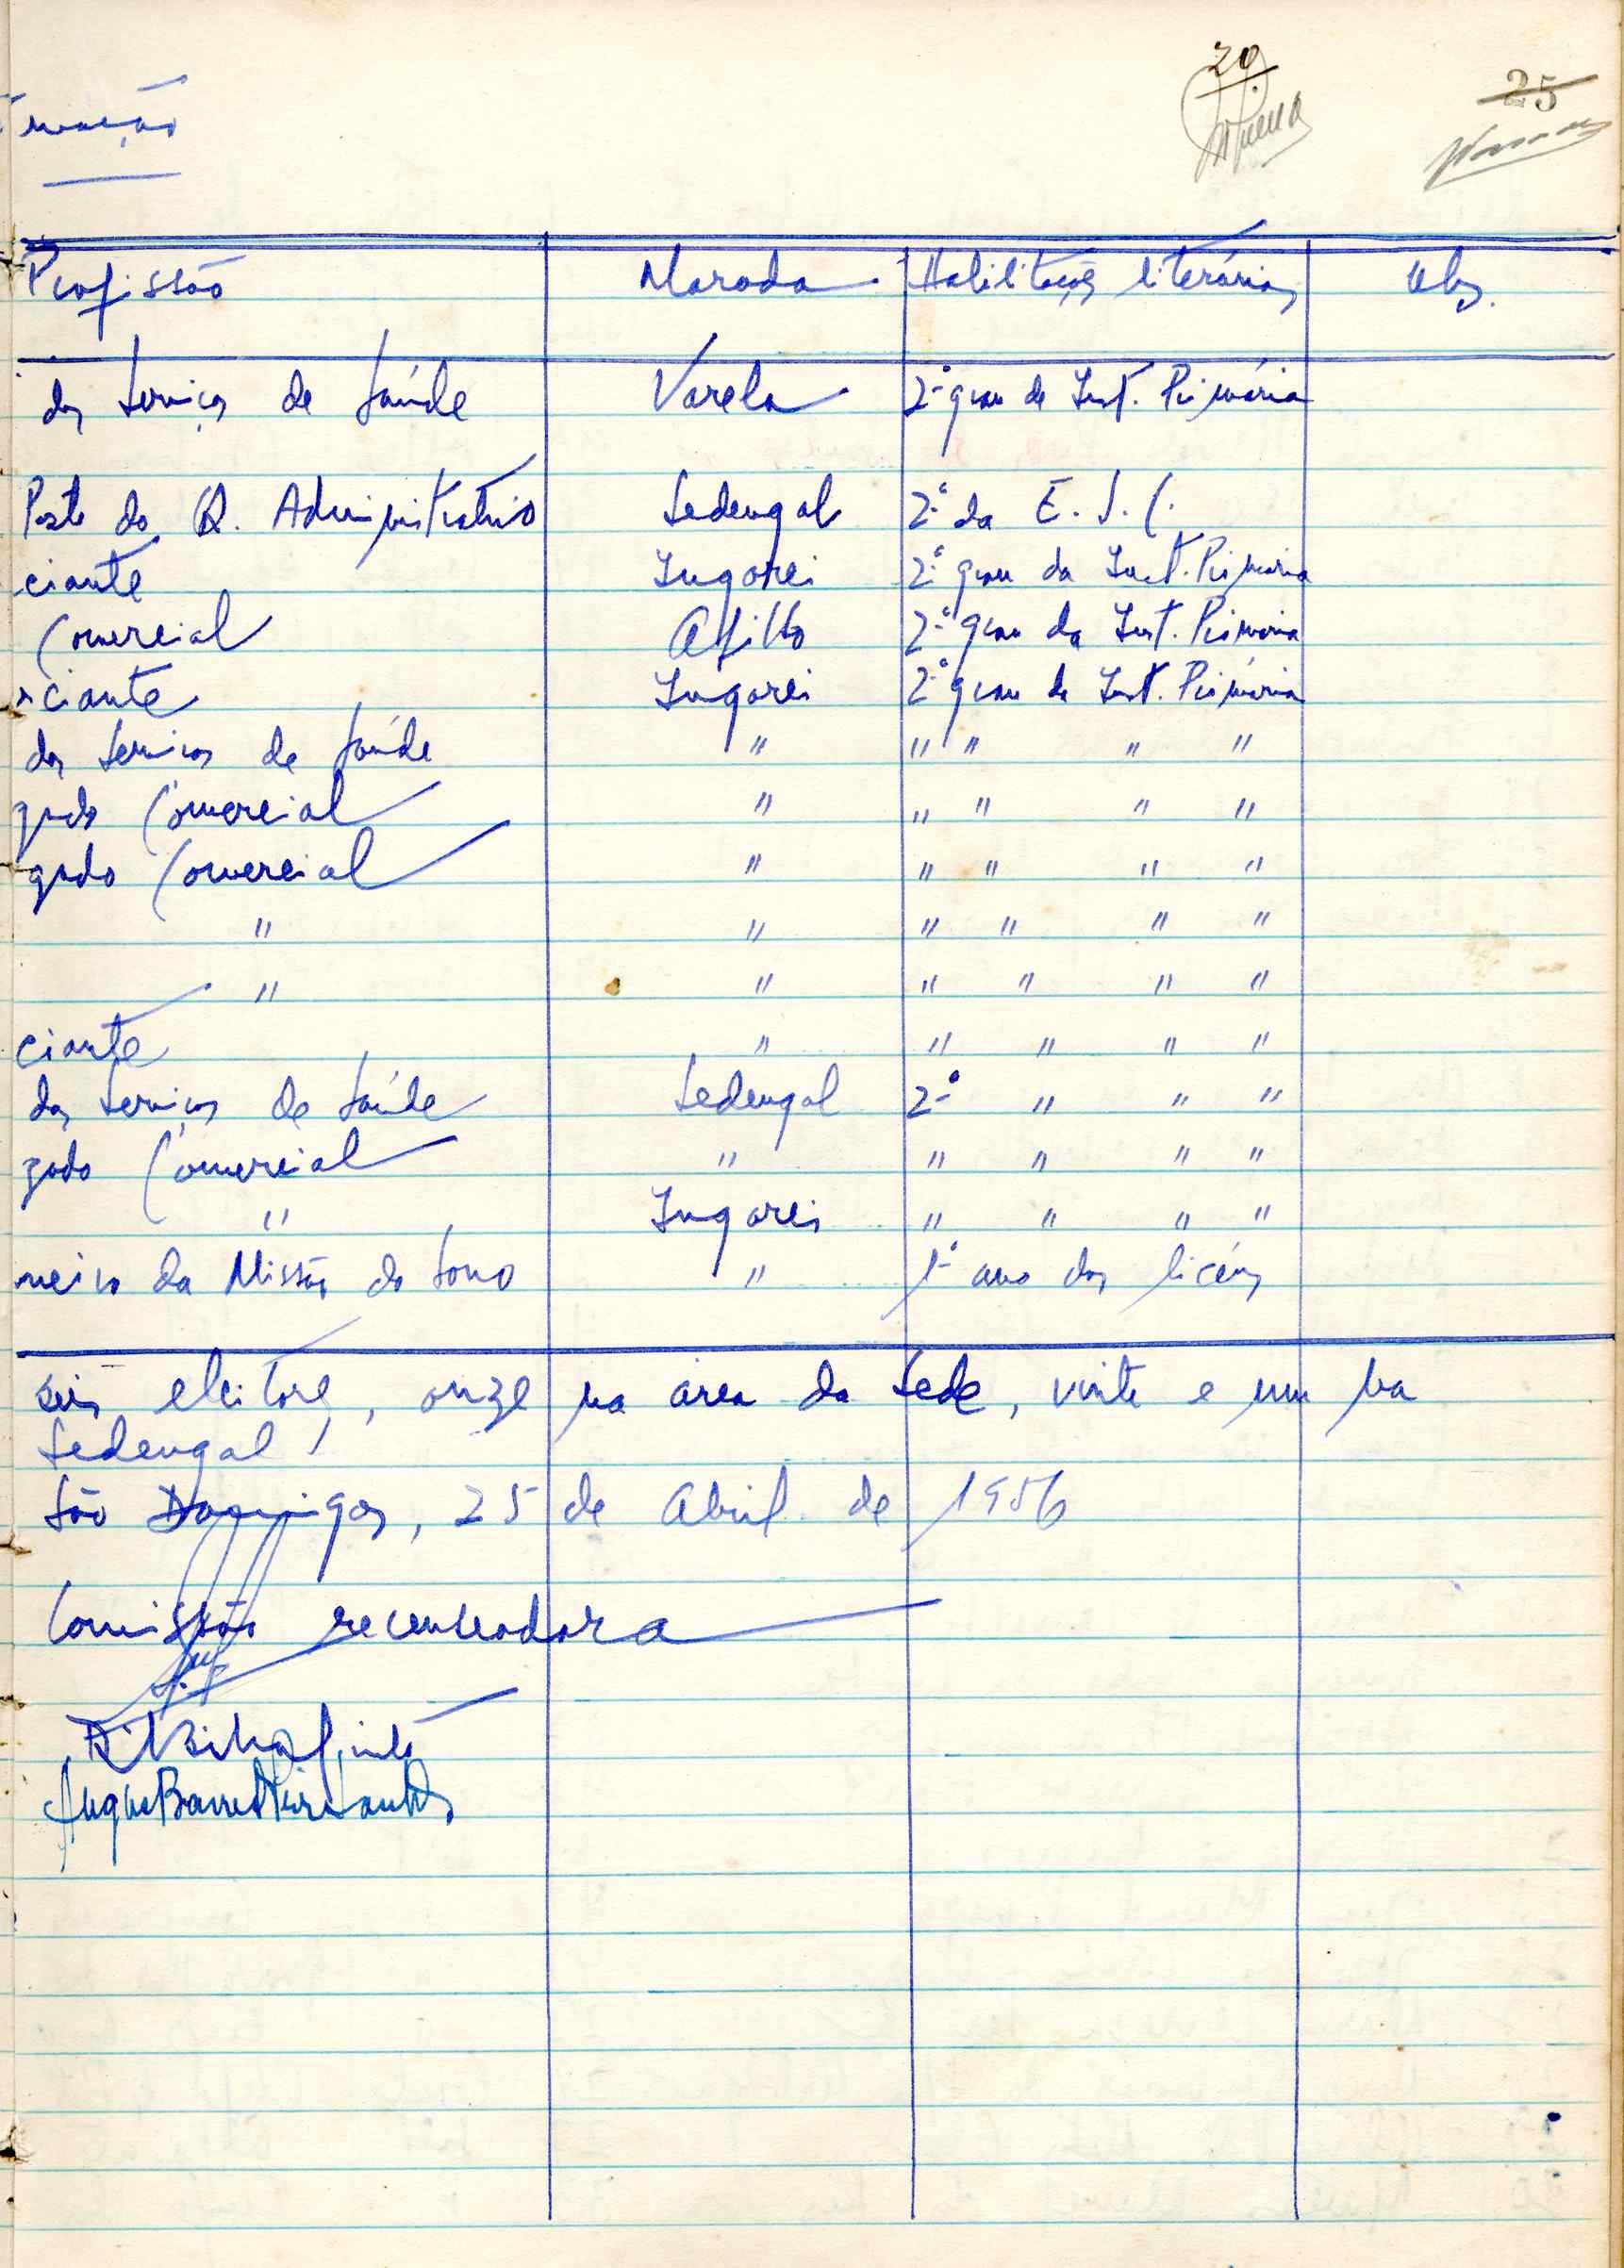 20
25
mação
Profissão Morada Habilitações literárias Obs.
dos Serviços de Saúde Varela 2.º grau de Inst. Primária
Posto do Q. Administrativo Sedengal 2.º da E. S. C.
ciante Ingorei 2.º grau da Inst. Primária
Comercial 2.º grau da Inst. Primária
ciante Ingorei 2.º grau de Inst. Primária
dos Serviços de Saúde " " " " "
gado Comercial " " " " "
gado Comercial " " " " "
" " " " " "
" " " " " "
ciante " " " " "
dos Serviços de Saúde Sedengal 2.º " " "
gado Comercial " " " " "
" Ingorei " " " "
meiro da Missão do Sono " 1.º ano dos liceus
seis eleitores, onze na área da Sede, vinte e um na
Sedengal
São Domingos, 25 de Abril de 1956
Comissão recenseadora